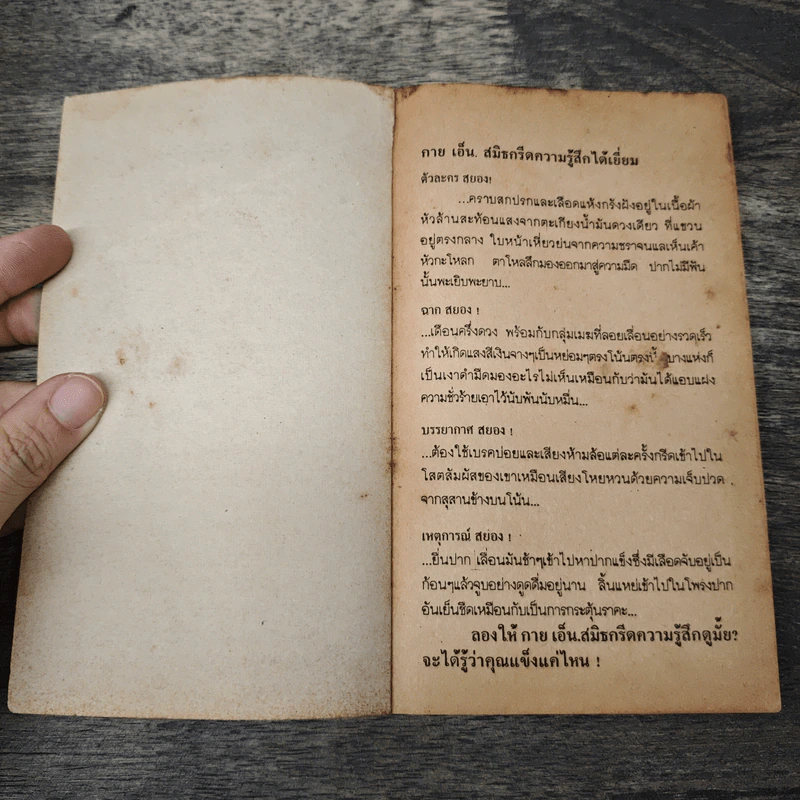 กาย เอ็น. สมิธกรีดความรู้สึกได้เยี่ยม
ตัวละคร สยอง!
...คราบสกปรกและเลือดแห้งกรังฝังอยู่ในเนื้อผ้า
หัวล้านสะท้อนแสงจากตะเกียงน้ำมันดวงเดียว ที่แขวน
อยู่ตรงกลาง ใบหน้าเหี่ยวย่นจากความชราจนแลเห็นเค้า
หัวกะโหลก ตาโหลลึกมองออกมาสู่ความมืด ปากไม่มีฟัน
นั้นพะเยิบพะยาบ...
ฉาก สยอง !
...เดือนครึ่งดวง พร้อมกับกลุ่มเมฆที่ลอยเลื่อนอย่างรวดเร็ว
ทำให้เกิดแสงสีเงินจางๆเป็นหย่อมๆตรงโน้นตรงนี้ บางแห่งก็
เป็นเงาดำมืดมองอะไรไม่เห็นเหมือนกับว่ามันได้แอบแฝง
ความชั่วร้ายเอาไว้นับพันนับหมื่น...
บรรยากาศ สยอง !
...ต้องใช้เบรคบ่อยและเสียงห้ามล้อแต่ละครั้งกรีดเข้าไปใน
โสตสัมผัสของเขาเหมือนเสียงโหยหวนด้วยความเจ็บปวด
จากสุสานข้างบนโน้น...
เหตุการณ์ สยอง !
...ยื่นปาก เลื่อนมันช้าๆเข้าไปหาปากแข็งซึ่งมีเลือดจับอยู่เป็น
ก้อนๆแล้วจูบอย่างดูดดื่มอยู่นาน ลิ้นแหย่เข้าไปในโพรงปาก
อันเย็นชืดเหมือนกับเป็นการกระตุ้นราคะ...
ลองให้ กาย เอ็น.สมิธกรีดความรู้สึกดูมั้ย?
จะได้รู้ว่าคุณแข็งแค่ไหน !